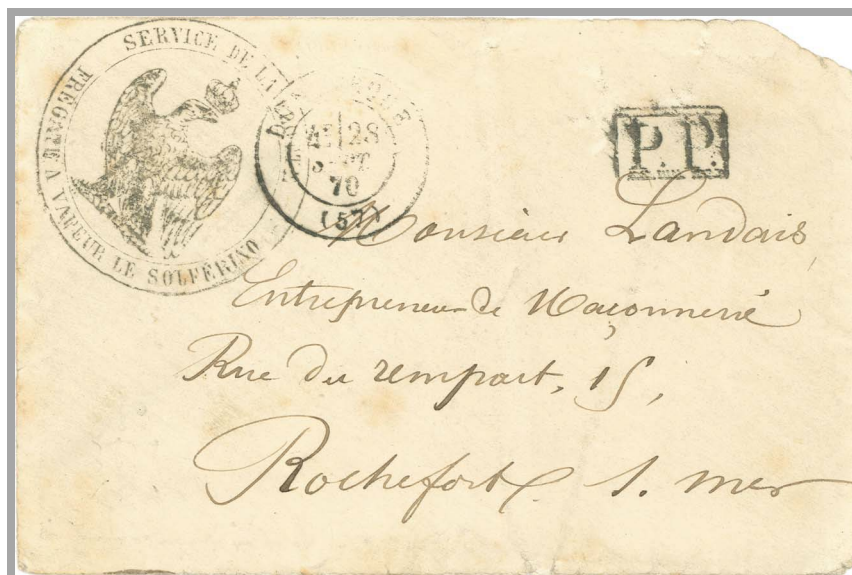 SERVICE DE LA
FREGATE A VAPEUR LE SOLFÉRINO
28
SEPT
70
(57)
P.P.
Monsieur Landais
Entrepreneur de Maçonnerie
Rue du rempart, 15,
Rochefort s. mer